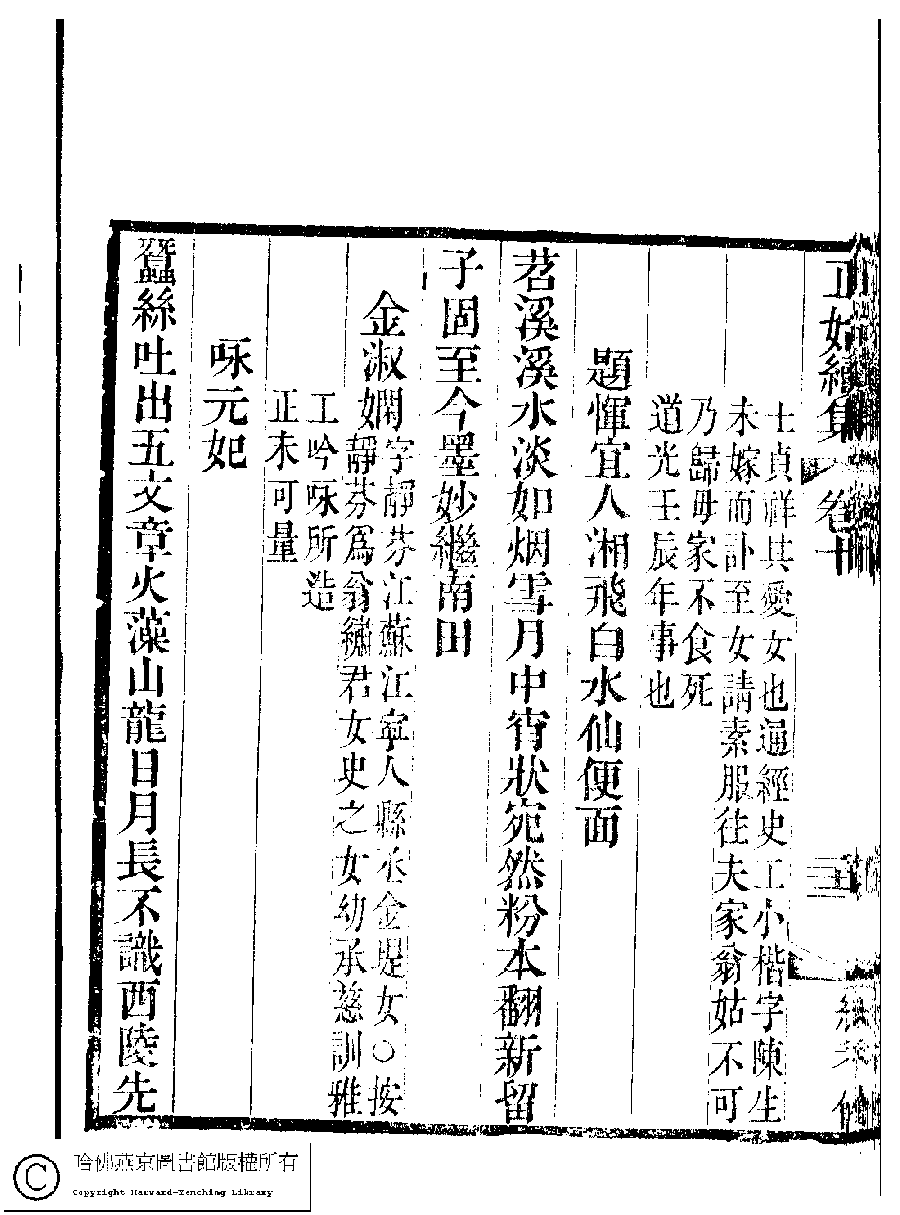 正始續集 卷十
士貞祥其愛女也通經史工小楷字陳生
未嫁而訃至女請素服往夫家翁姑不可
乃歸母家不食死
道光壬辰年事也
題惲宜人湘飛白水仙便面
苕溪溪水淡如烟雪月中宵狀宛然粉本翻新留
子固至今墨妙繼南田
金淑嫻字靜芬江蘇江寧人縣丞金堤女○按
靜芬爲翁繡君女史之女幼承慈訓雅
工吟咏所造
正未可量
咏元妃
蠶絲吐出五文章火藻山龍日月長不識西陵先
哈佛燕京圖書館版權所有
Copyright Harvard-Yenching Library